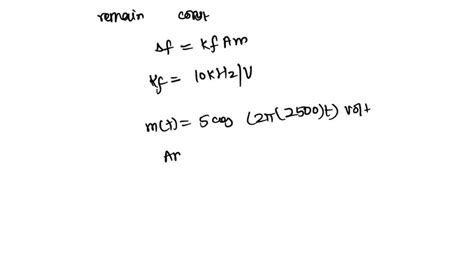 remain const
Δf = kf Am
kf = 10kHz/V
m(t) = 5 cos (2π(2500)t) volt
Am